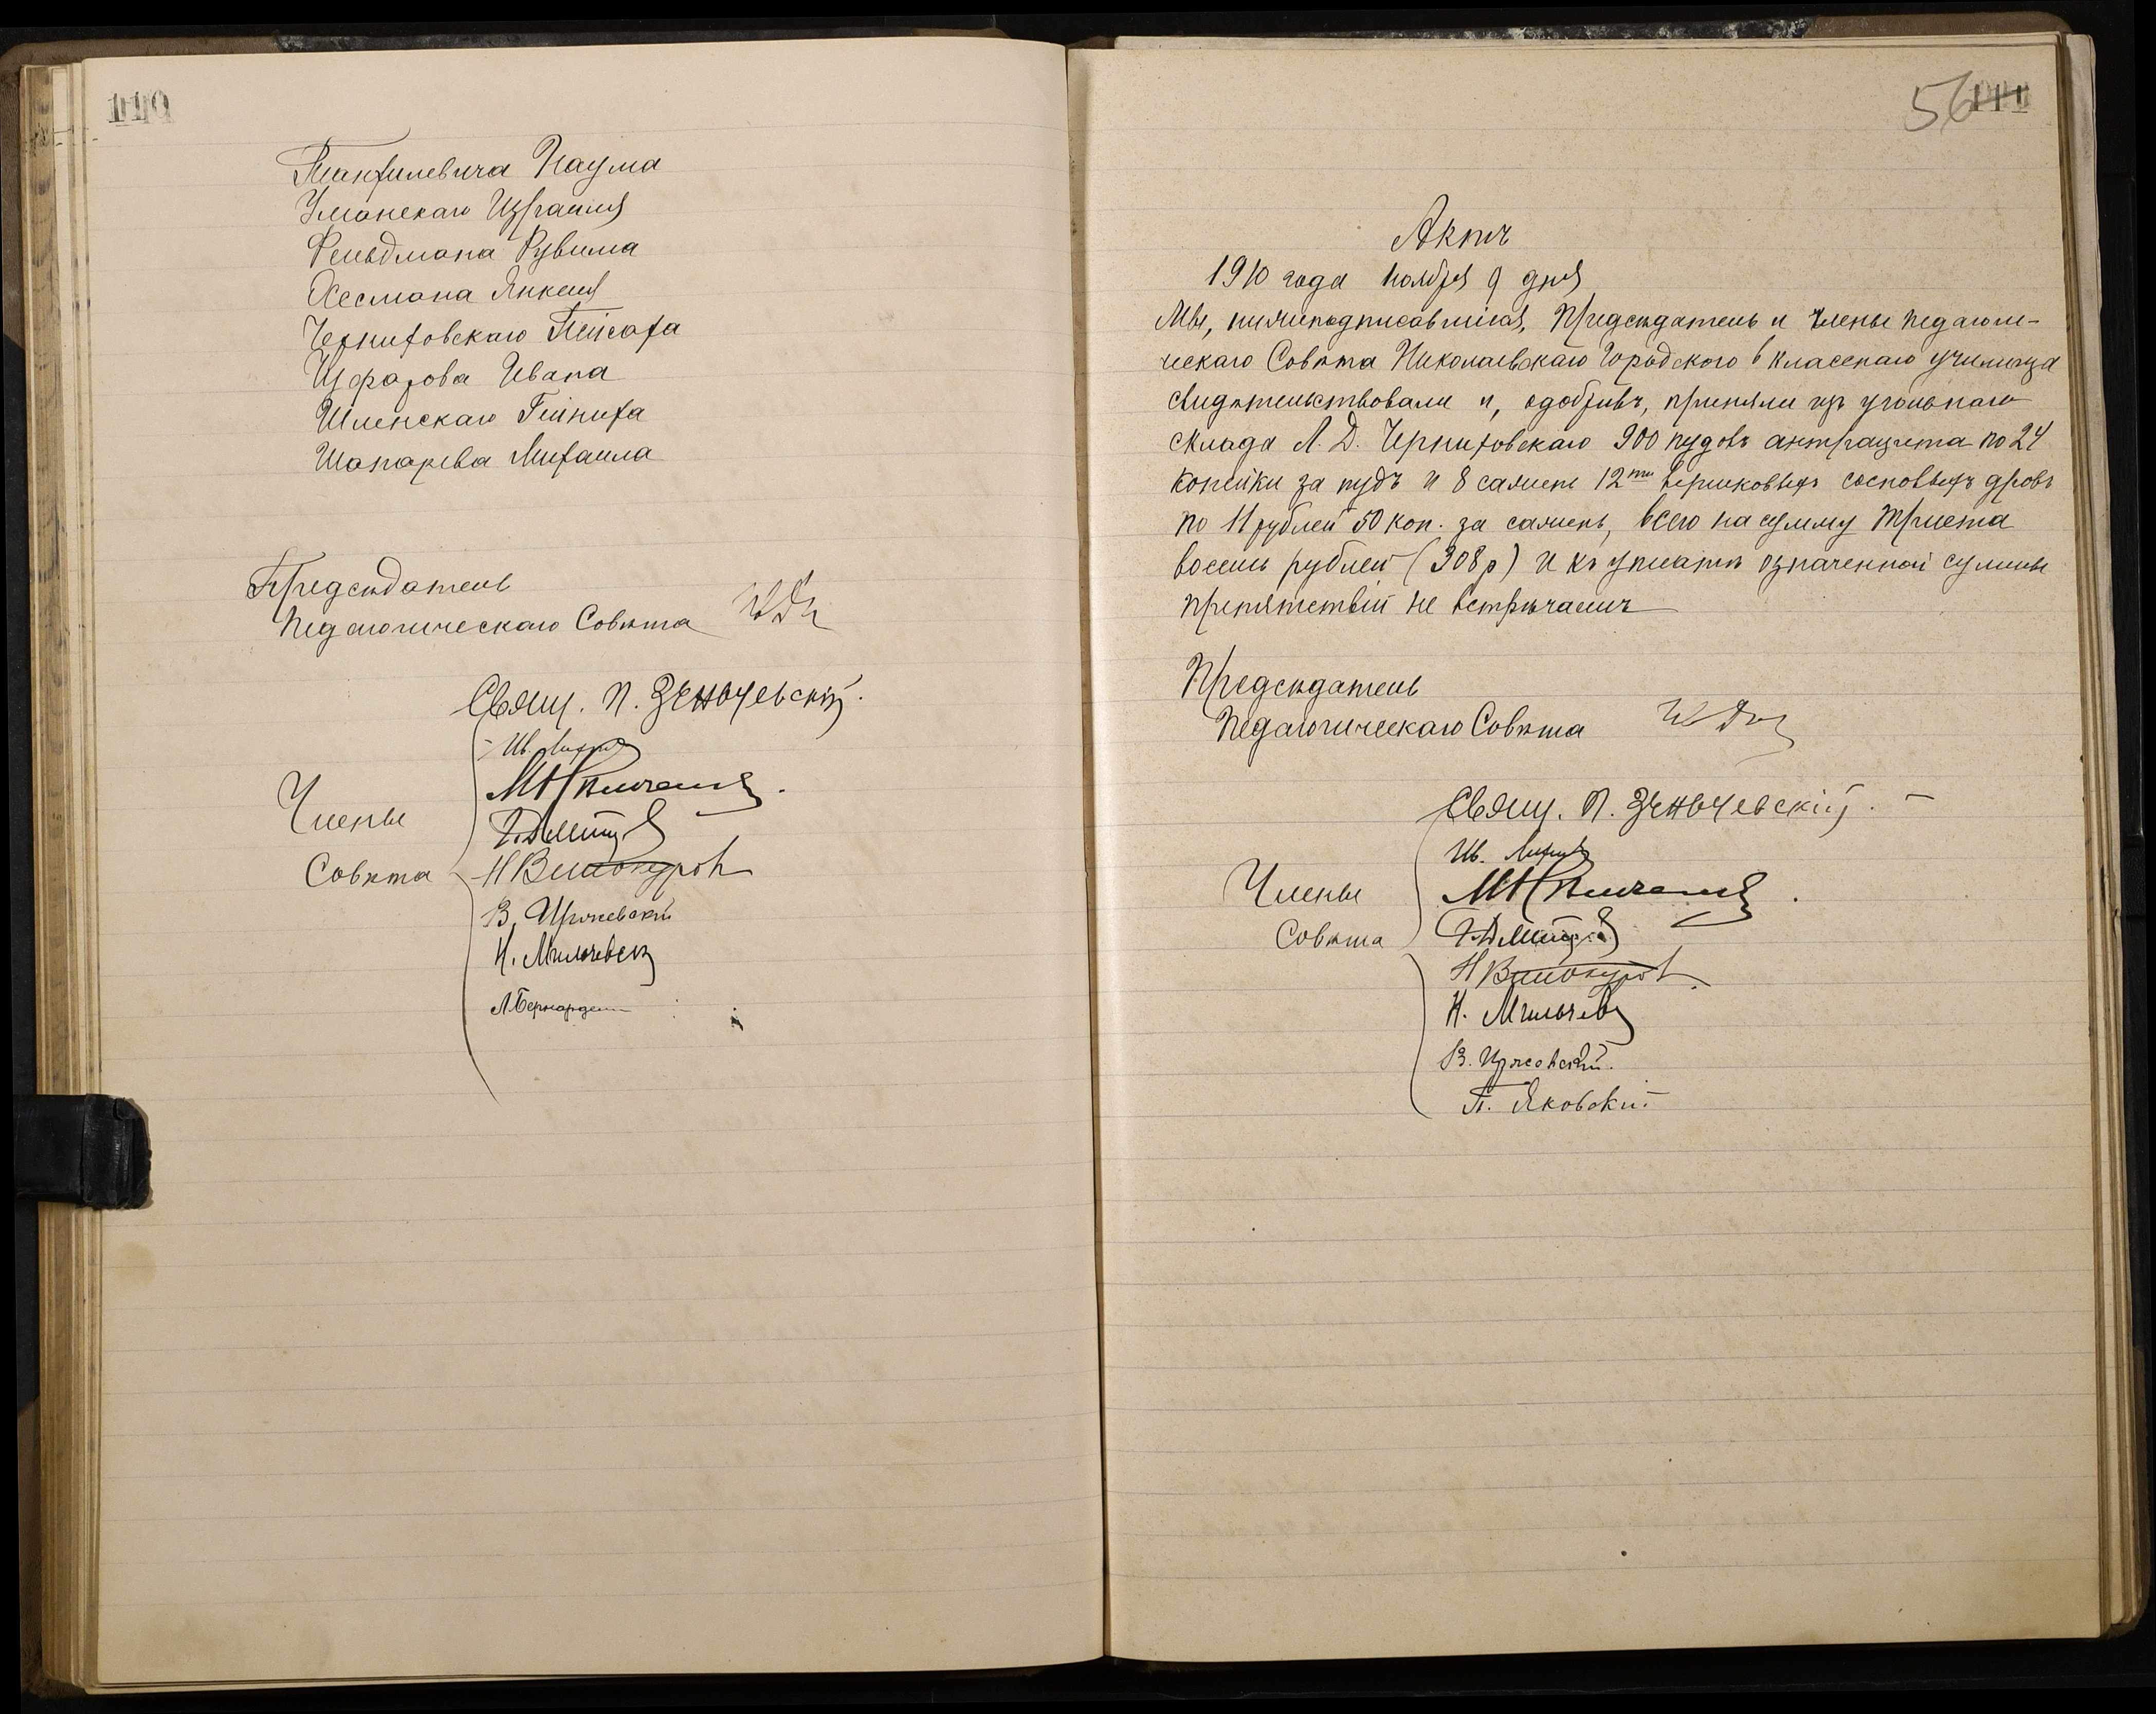 110
Панфилевича Наума
Уманскаго Израиля
Фельдмана Рувима
Хесмана Янкеля
Черниховскаго Пейсаха
Цфасова Ивана
Шленскаго Гейниха
Шапарева Михаила
Предсѣдатель
Педагогическаго Совѣта
Свящ. П. Зеньчевскій.
Члены
Совѣта
Н Винокуровъ
Н. Мильчевск
56 111
Актъ
1910 года ноября 9 дня
Мы, нижеподписавшіеся, Предсѣдатель и Члены Педагоги-
ческаго Совѣта Николаевскаго Городского 6 класснаго училища
свидѣтельствовали и, одобривъ, приняли изъ угольнаго
склада Л. Д. Черниховскаго 900 пудовъ антрацита по 24
копейки за пудъ и 8 сажень 12ти вершковыхъ сосновыхъ дровъ
по 11 рублей 50 коп. за сажень, всего на сумму триста
восемь рублей (308 р) и къ уплатѣ означенной суммы
препятствій не встрѣчаемъ
Предсѣдатель
Педагогическаго Совѣта
Свящ. П. Зеньчевскій.
Члены
Совѣта
Н Винокуровъ
П. Яковскій